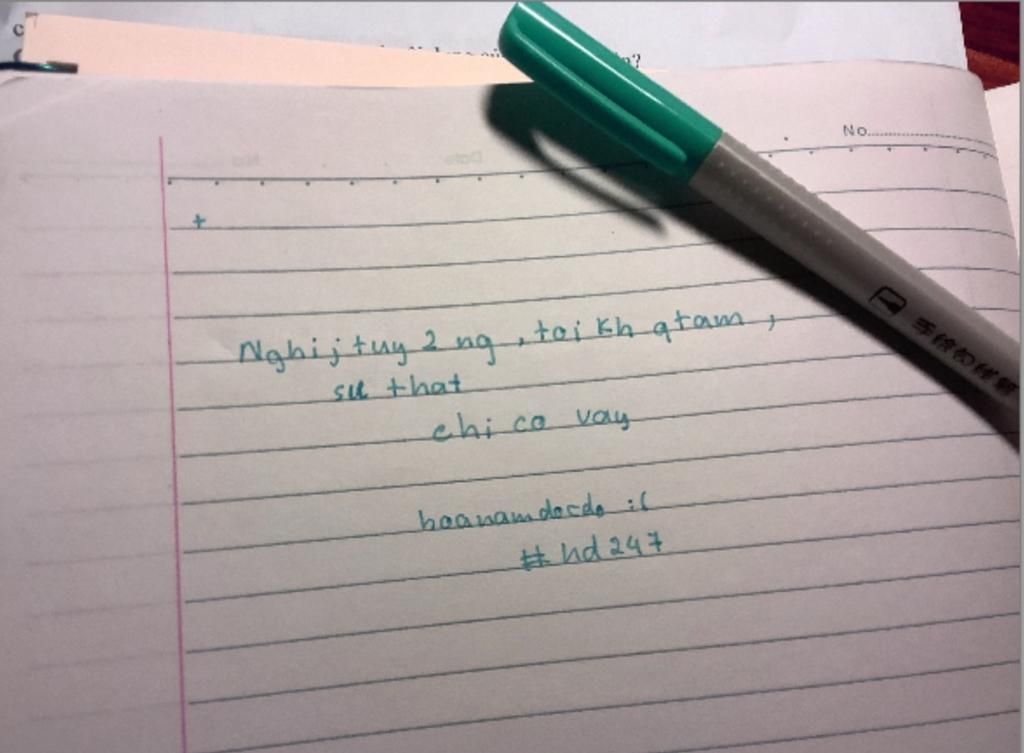 No
+
Nghij tuy 2 ng, toi kh qtam,
su that
chi co vay
hoanamdocdo :(
#hd247